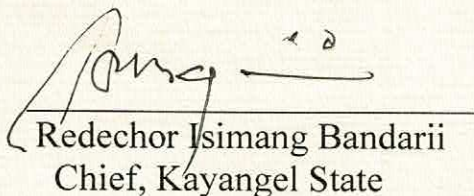 Redechor Isimang Bandarii
Chief, Kayangel State